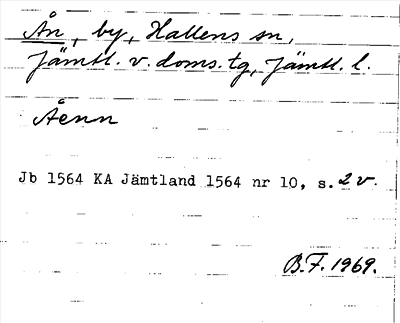 Ån, by, Hallens sn,
Jämtl. v. doms. tg, Jämtl. l.
Åenn
Jb 1564 KA Jämtland 1564 nr 10, s. 2 v.
B.F. 1969.